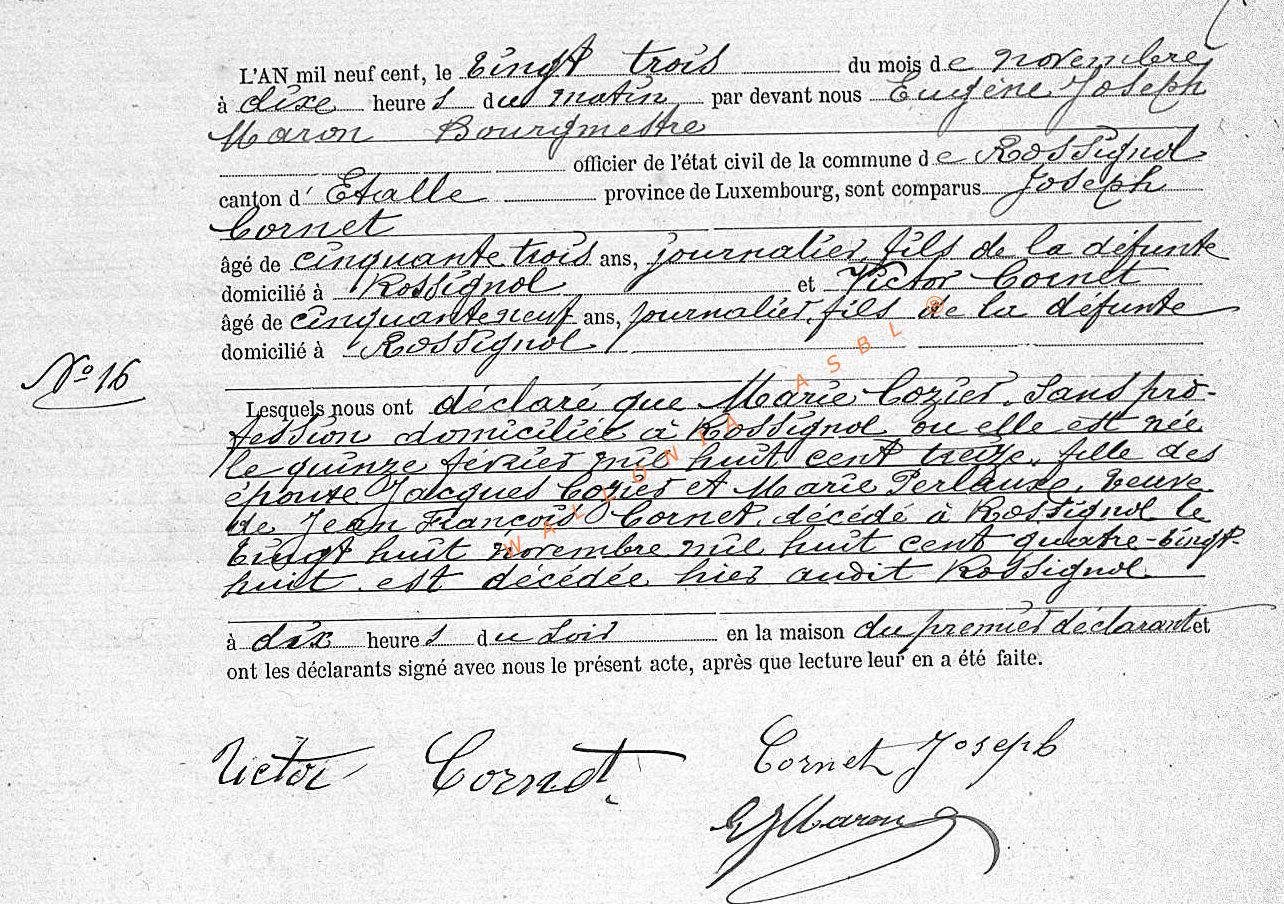 L'AN mil neuf cent, le vingt trois du mois de novembre
à dixe heures du matin, par devant nous Eugène Joseph
Maron Bourgmestre
officier de l'état civil de la commune de Rossignol
canton d' Etalle province de Luxembourg, sont comparus Joseph
Cornet
âgé de cinquante trois ans, journalier, fils de la défunte
domicilié à Rossignol et Victor Cornet
âgé de cinquante neuf ans, journalier, fils de la défunte
domicilié à Rossignol
N° 16
Lesquels nous ont déclaré que Marie Cozier, sans pro-
fession domiciliée à Rossignol ou elle est née
le quinze février mil huit cent treize, fille des
époux Jacques Cozier et Marie Perlauxe, veuve
de Jean François Cornet, décédé à Rossignol le
vingt huit novembre mil huit cent quatre-vingt-
huit, est décédée hier audit Rossignol
à dix heures du soir en la maison du premier déclarant et
ont les déclarants signé avec nous le présent acte, après que lecture leur en a été faite.
Victor Cornet.
Cornet Joseph
EJMaron
WALLONIA ASBL ®